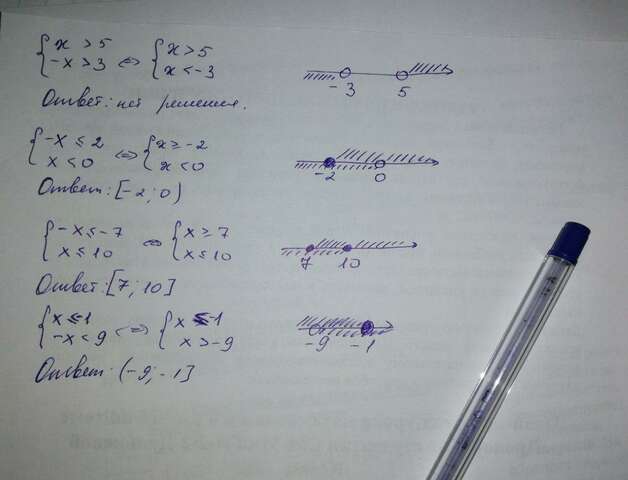 { x > 5 ⇔ { x > 5
{ -x > 3 { x < -3
-3 5
Ответ: нет решения.
{ -x ≤ 2 ⇔ { x ≥ -2
{ x < 0 { x < 0
-2 0
Ответ: [-2; 0)
{ -x ≤ -7 ⇔ { x ≥ 7
{ x ≤ 10 { x ≤ 10
7 10
Ответ: [7; 10]
{ x ≤ -1 ⇔ { x ≤ -1
{ -x < 9 { x > -9
-9 -1
Ответ: (-9; -1]